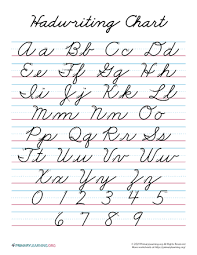 Hadwriting Chart
Aa Bb Cc Dd
Ee Ff Gg Hh
Ii Jj Kk Ll
Mm Nn Oo
Pp Qq Rr Ss
Tt Uu Vv Ww
Xx Yy Zz
0 1 2 3 4 5
6 7 8 9
PRIMARYLEARNING.ORG